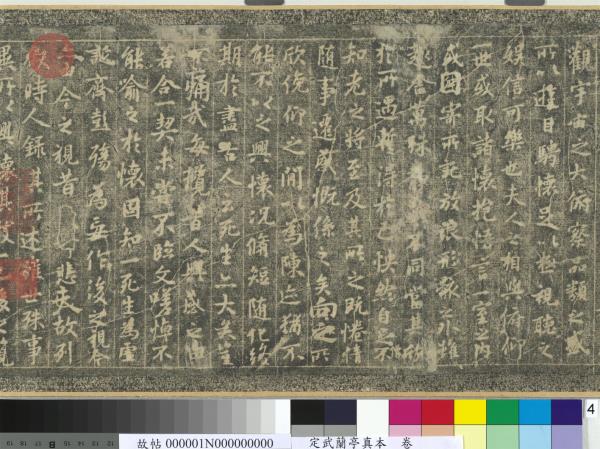 觀宇宙之大俯察品類之盛
所以遊目騁懷足以極視聽之
娛信可樂也夫人之相與俯仰
一世或取諸懷抱悟言一室之內
或因寄所託放浪形骸之外雖
趣舍萬殊靜躁不同當其欣
於所遇暫得於己快然自足不
知老之將至及其所之既惓情
隨事遷感慨係之矣向之所
欣俛仰之間以為陳迹猶不
能不以之興懷況脩短隨化終
期於盡古人云死生亦大矣豈
不痛哉每攬昔人興感之由
若合一契未嘗不臨文嗟悼不
能喻之於懷固知一死生為虛
誕齊彭殤為妄作後之視今
亦由今之視昔悲夫故列
敘時人錄其所述雖世殊事
異所以興懷其致一也後之攬
4
19 18 17 16 15 B 17 16 11 10 09
故帖 000001N000000000 定武蘭亭真本 卷